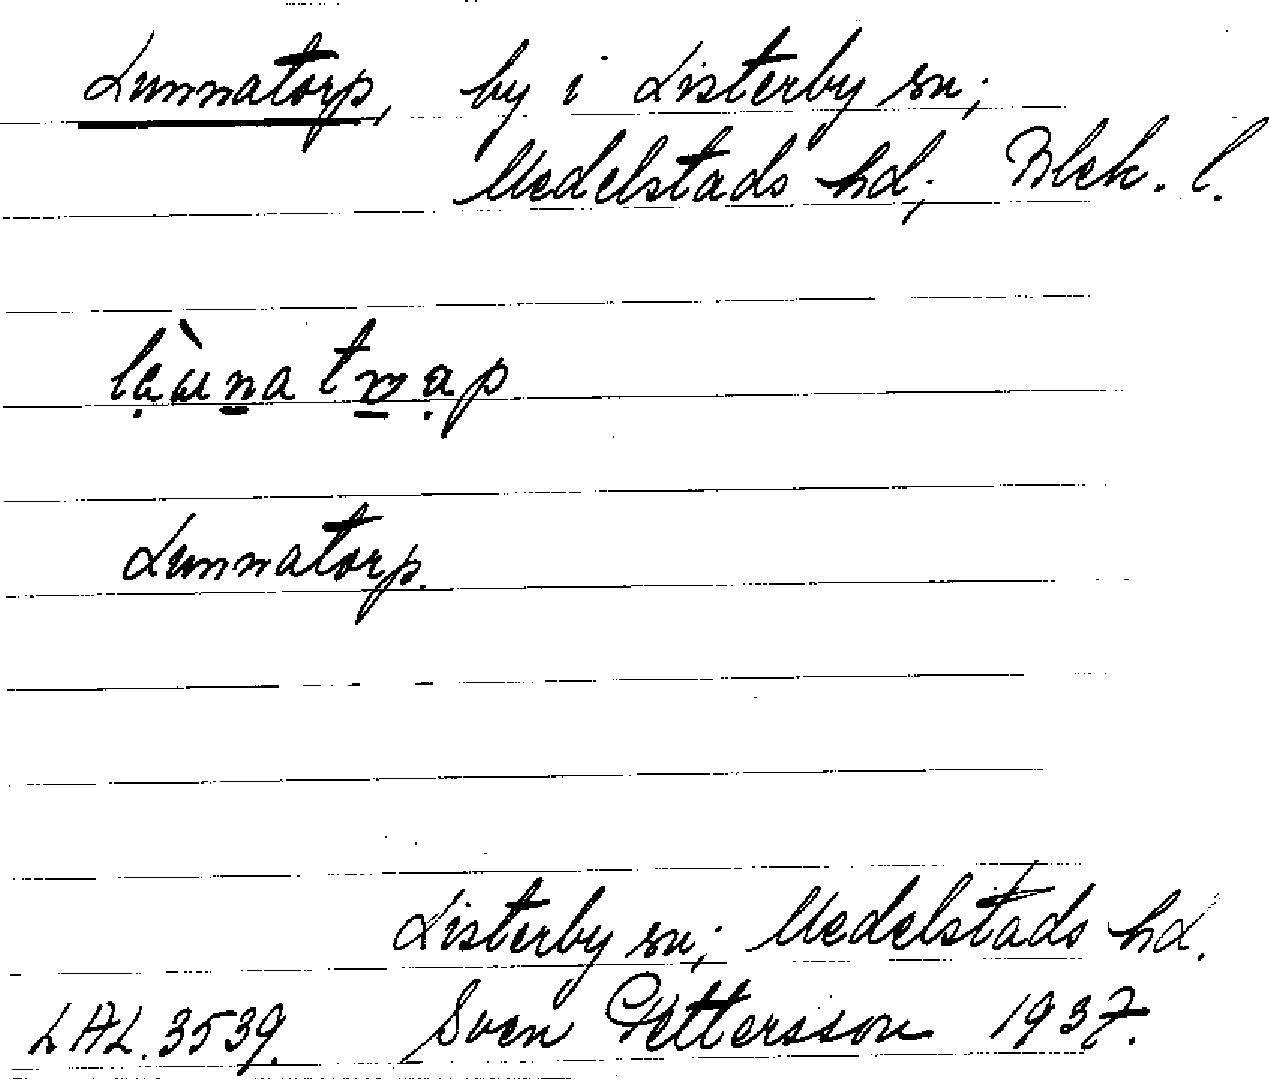 Lunnatorp, by i Listerby sn;
Medelstads hd; Blek. l.
Lunnatorp.
Listerby sn; Medelstads hd.
LAL. 3539. Sven Pettersson 1937.